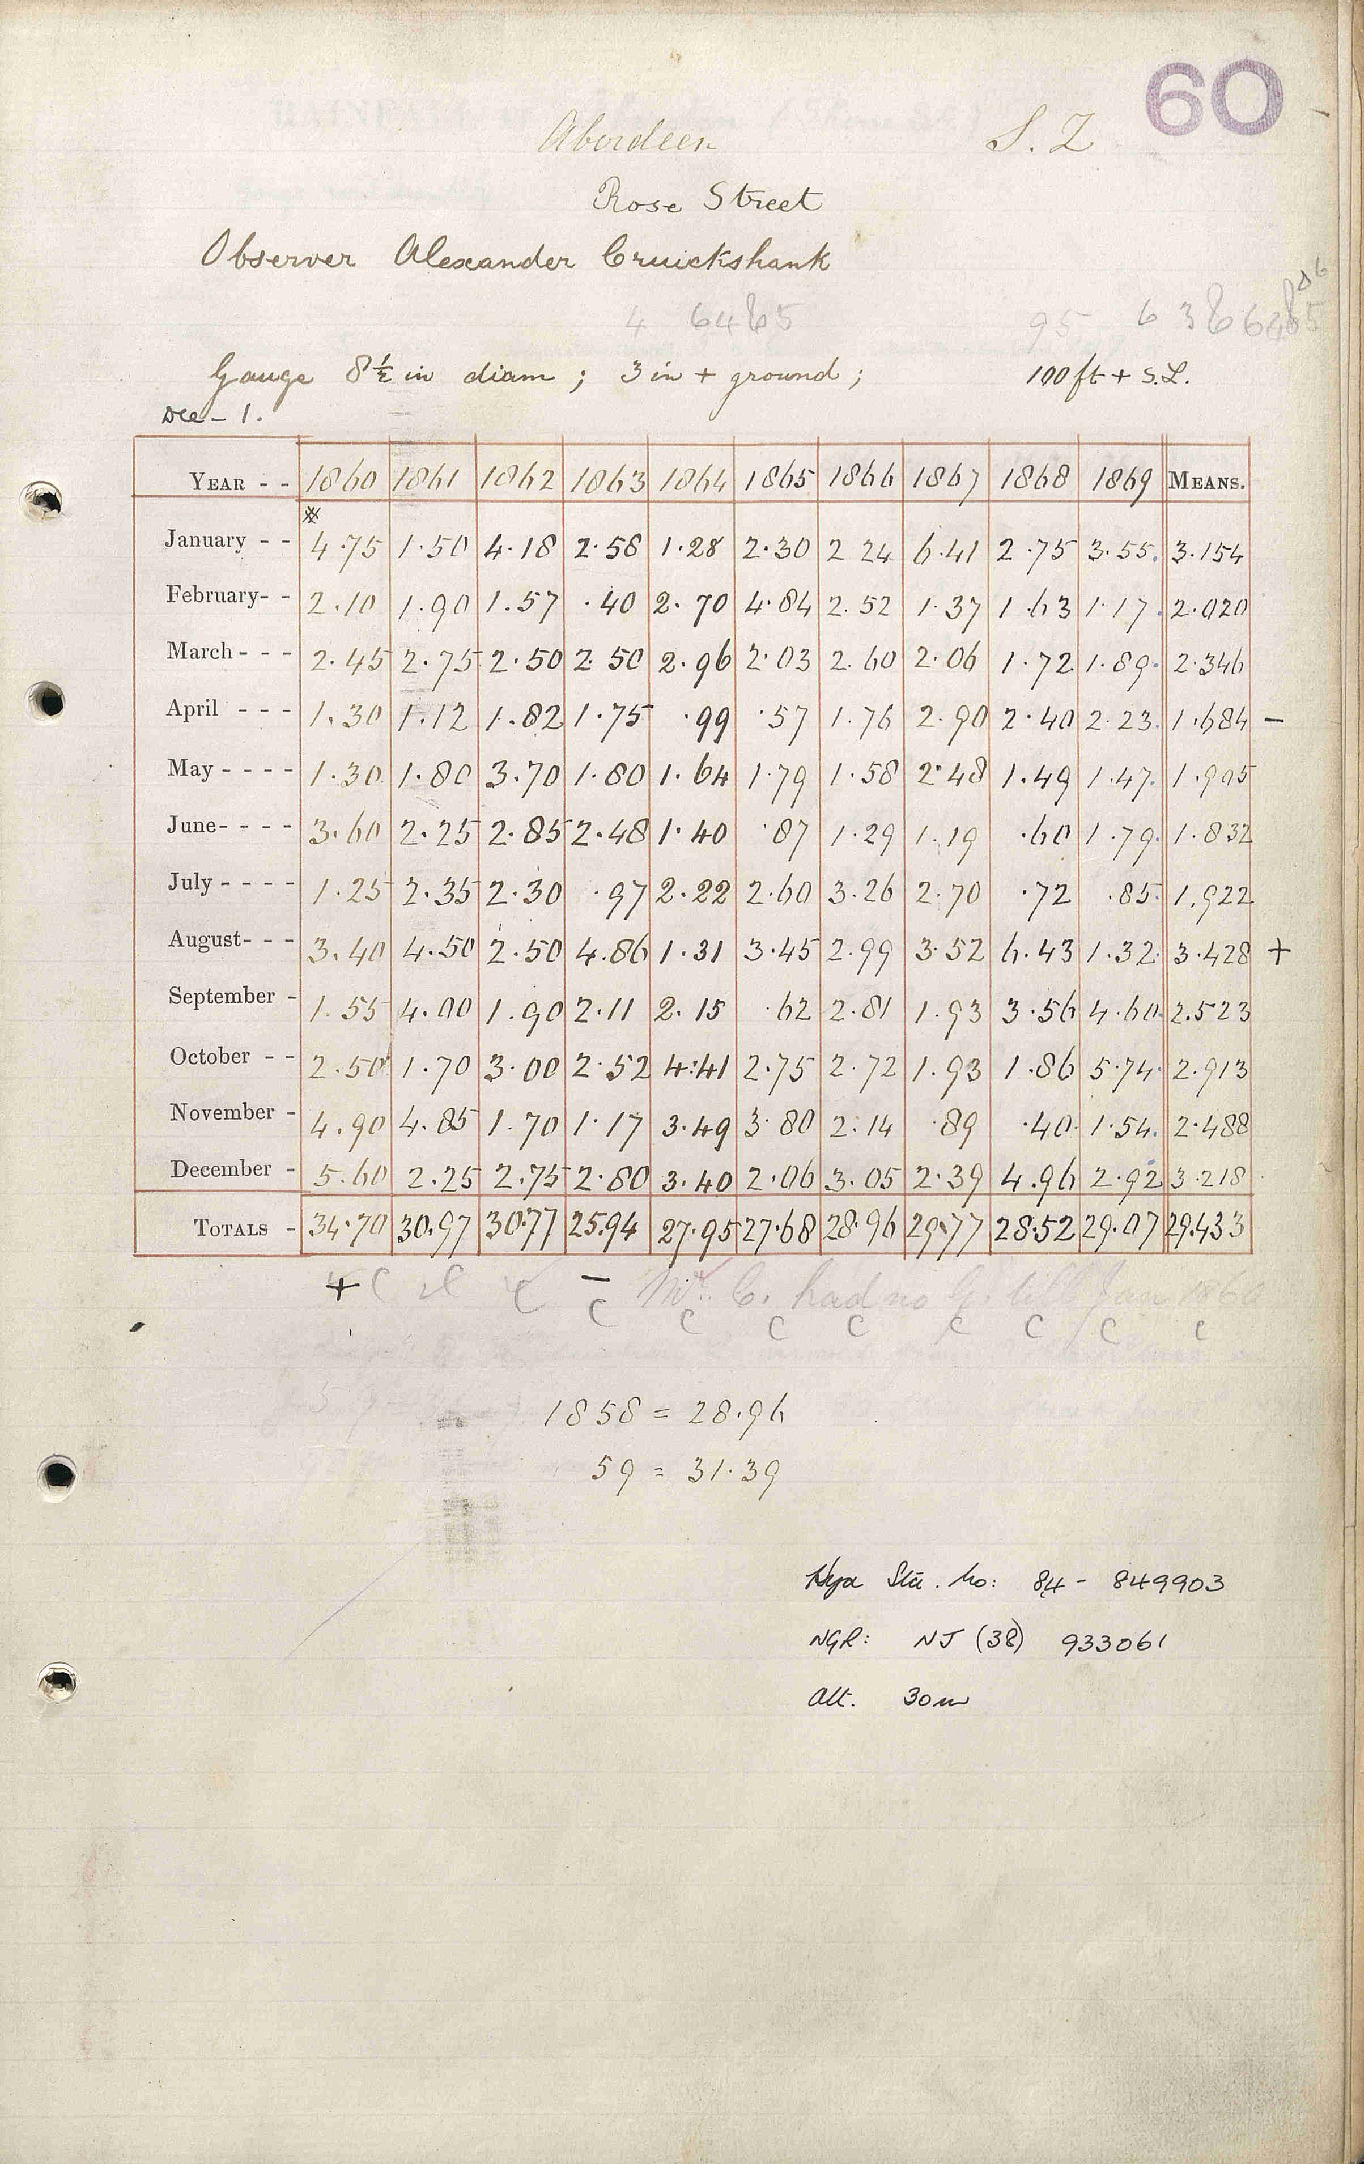 60
Aberdeen S.Z
Rose Street
Observer Alexander Cruickshank
4 6465 95 6 3 6
Gauge 8½ in diam ; 3 in + ground ; 100 ft + S.L.
Dec - 1.
YEAR - - 1860 1861 1862 1863 1864 1865 1866 1867 1868 1869 MEANS.
January - - 4.75 1.50 4.18 2.58 1.28 2.30 2 24 6.41 2.75 3.55. 3.154
February- - 2.10 1.90 1.57 .40 2.70 4.84 2.52 1.37 1.63 1.17. 2.020
March - - - 2.45 2.75 2.50 2.50 2.96 2.03 2.60 2.06 1.72 1.89. 2.346
April - - - 1.30 1.12 1.82 1.75 .99 .57 1.76 2.90 2.40 2.23. 1.684 -
May - - - - 1.30 1.80 3.70 1.80 1.64 1.79 1.58 2.48 1.49 1.47. 1.905
June- - - - 3.60 2.25 2.85 2.48 1.40 .87 1.29 1.19 .60 1.79. 1.832
July - - - - 1.25 2.35 2.30 .97 2.22 2.60 3.26 2.70 .72 .85. 1.922
August- - - 3.40 4.50 2.50 4.86 1.31 3.45 2.99 3.52 6.43 1.32. 3.428 +
September - 1.55 4.00 1.90 2.11 2.15 .62 2.81 1.93 3.56 4.60. 2.523
October - - 2.50 1.70 3.00 2.52 4.41 2.75 2.72 1.93 1.86 5.74. 2.913
November - 4.90 4.85 1.70 1.17 3.49 3.80 2.14 .89 .40. 1.54. 2.488
December - 5.60 2.25 2.75 2.80 3.40 2.06 3.05 2.39 4.96 2.92 3.218
TOTALS - 34.70 30.97 30.77 25.94 27.95 27.68 28.96 29.77 28.52 29.07 29.433
+ C C C - Mr. C. had no G. till Jan 1860
C C C C C C C C
1858 = 28.96
59 = 31.39
Hya Sta. No: 84 - 849903
NGR: NJ (38) 933061
Alt. 30m